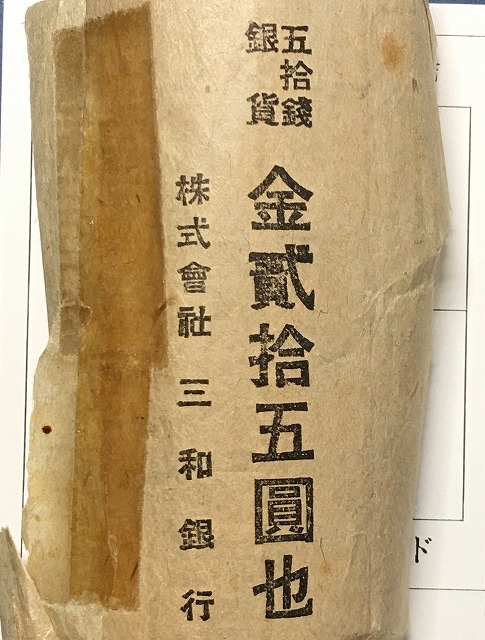 五拾錢
銀貨
金貳拾五圓也
株式會社三和銀行
ド